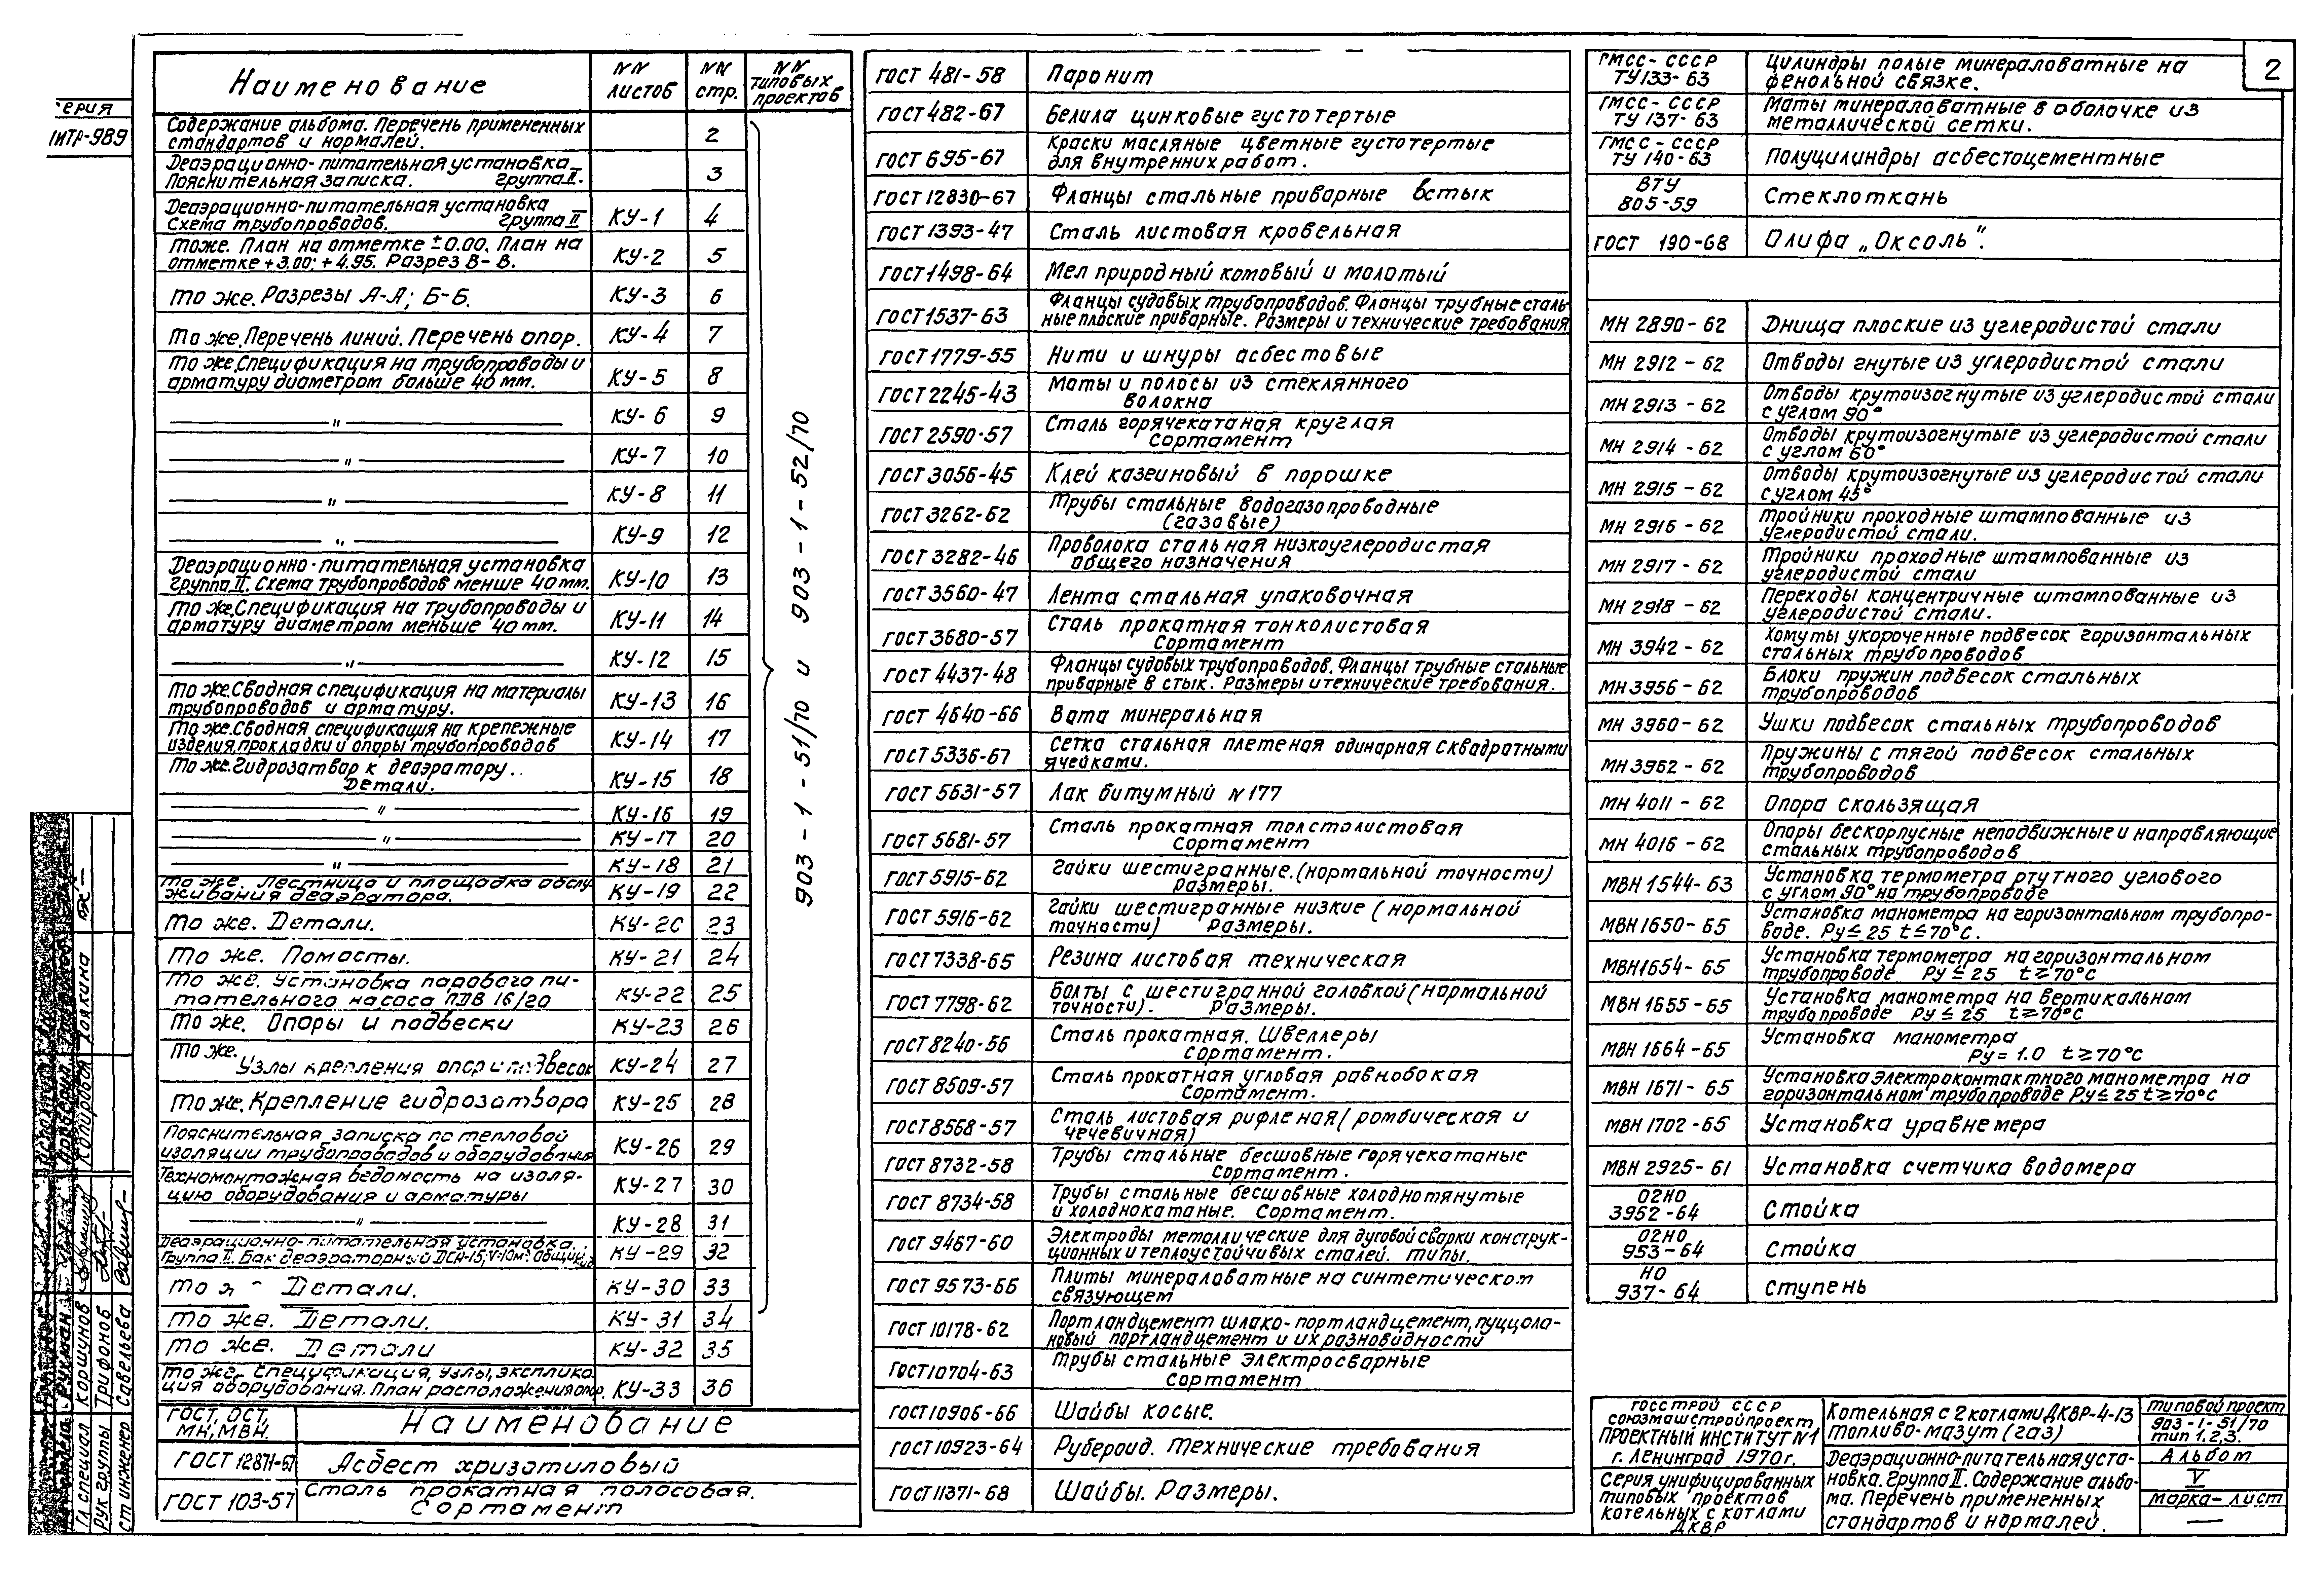 2
серия
Наименование
NN листов
NN стр.
NN типовых проектов
Содержание альбома. Перечень примененных
стандартов и нормалей.
2
Деаэрационно-питательная установка
Пояснительная записка. группа II.
3
Деаэрационно-питательная установка
Схема трубопроводов. группа II
КУ-1 4
То же. План на отметке ±0.00. План на
отметке +3.00; +4.95. Разрез В-В.
КУ-2 5
То же. Разрезы А-А; Б-Б.
КУ-3 6
То же. Перечень линий. Перечень опор.
КУ-4 7
То же. Спецификация на трубопроводы и
арматуру диаметром больше 40 мм.
КУ-5 8
—— " ——
КУ-6 9
—— " ——
КУ-7 10
—— " ——
КУ-8 11
—— " ——
КУ-9 12
Деаэрационно-питательная установка
группа II. Схема трубопроводов меньше 40 мм.
КУ-10 13
То же. Спецификация на трубопроводы и
арматуру диаметром меньше 40 мм.
КУ-11 14
—— " ——
КУ-12 15
То же. Сводная спецификация на материалы
трубопроводов и арматуру.
КУ-13 16
То же. Сводная спецификация на крепежные
изделия, прокладки и опоры трубопроводов
КУ-14 17
То же. Гидрозатвор к деаэратору..
Детали.
КУ-15 18
—— " ——
КУ-16 19
—— " ——
КУ-17 20
—— " ——
КУ-18 21
То же. Лестница и площадка обслу-
живания деаэратора.
КУ-19 22
То же. Детали.
КУ-20 23
То же. Помосты.
КУ-21 24
То же. Установка парового пи-
тательного насоса ПДВ 16/20
КУ-22 25
То же. Опоры и подвески
КУ-23 26
То же.
Узлы крепления опор и подвесок
КУ-24 27
То же. Крепление гидрозатвора
КУ-25 28
Пояснительная записка по тепловой
изоляции трубопроводов и оборудования
КУ-26 29
Техномонтажная ведомость на изоля-
цию оборудования и арматуры
КУ-27 30
—— " ——
КУ-28 31
Деаэрационно-питательная установка.
Группа II. Бак деаэраторный ДСА-15; V-10м³. Общий вид
КУ-29 32
То ж Детали.
КУ-30 33
То же. Детали.
КУ-31 34
То же. Детали
КУ-32 35
То же. Спецификация, узлы, эксплика-
ция оборудования. План расположения опор.
КУ-33 36
903-1-51/70 и 903-1-52/70
ГОСТ, ОСТ,
МН, МВН.
Наименование
ГОСТ 12871-67 Асбест хризотиловый
ГОСТ 103-57 Сталь прокатная полосовая.
Сортамент
ГОСТ 481-58 Паронит
ГОСТ 482-67 Белила цинковые густотертые
ГОСТ 695-67 Краски масляные цветные густотертые
для внутренних работ.
ГОСТ 12830-67 Фланцы стальные приварные встык
ГОСТ 1393-47 Сталь листовая кровельная
ГОСТ 1498-64 Мел природный комовый и молотый
ГОСТ 1537-63 Фланцы судовых трубопроводов. Фланцы трубные сталь-
ные плоские приварные. Размеры и технические требования
ГОСТ 1779-55 Нити и шнуры асбестовые
ГОСТ 2245-43 Маты и полосы из стеклянного
волокна
ГОСТ 2590-57 Сталь горячекатаная круглая
Сортамент
ГОСТ 3056-45 Клей казеиновый в порошке
ГОСТ 3262-62 Трубы стальные водогазопроводные
(газовые)
ГОСТ 3282-46 Проволока стальная низкоуглеродистая
общего назначения
ГОСТ 3560-47 Лента стальная упаковочная
ГОСТ 3680-57 Сталь прокатная тонколистовая
Сортамент
ГОСТ 4437-48 Фланцы судовых трубопроводов. Фланцы трубные стальные
приварные в стык. Размеры и технические требования.
ГОСТ 4640-66 Вата минеральная
ГОСТ 5336-67 Сетка стальная плетеная одинарная с квадратными
ячейками.
ГОСТ 5631-57 Лак битумный N 177
ГОСТ 5681-57 Сталь прокатная толстолистовая
Сортамент
ГОСТ 5915-62 Гайки шестигранные. (нормальной точности)
размеры.
ГОСТ 5916-62 Гайки шестигранные низкие (нормальной
точности) Размеры.
ГОСТ 7338-65 Резина листовая техническая
ГОСТ 7798-62 Болты с шестигранной головкой (нормальной
точности). Размеры.
ГОСТ 8240-56 Сталь прокатная. Швеллеры
Сортамент.
ГОСТ 8509-57 Сталь прокатная угловая равнобокая
Сортамент.
ГОСТ 8568-57 Сталь листовая рифленая (ромбическая и
чечевичная)
ГОСТ 8732-58 Трубы стальные бесшовные горячекатаные
Сортамент.
ГОСТ 8734-58 Трубы стальные бесшовные холоднотянутые
и холоднокатаные. Сортамент.
ГОСТ 9467-60 Электроды металлические для дуговой сварки конструк-
ционных и теплоустойчивых сталей. Типы.
ГОСТ 9573-66 Плиты минераловатные на синтетическом
связующем
ГОСТ 10178-62 Портландцемент шлако-портландцемент, пуццола-
новый портландцемент и их разновидности
ГОСТ 10704-63 Трубы стальные электросварные
Сортамент
ГОСТ 10906-66 Шайбы косые.
ГОСТ 10923-64 Рубероид. Технические требования
ГОСТ 11371-68 Шайбы. Размеры.
ГМСС-СССР
ТУ 133-63
Цилиндры полые минераловатные на
фенольной связке.
ГМСС-СССР
ТУ 137-63
Маты минераловатные в оболочке из
металлической сетки.
ГМСС-СССР
ТУ 140-63
Полуцилиндры асбестоцементные
ВТУ
805-59
Стеклоткань
ГОСТ 190-68 Олифа „Оксоль".
МН 2890-62 Днища плоские из углеродистой стали
МН 2912-62 Отводы гнутые из углеродистой стали
МН 2913-62 Отводы крутоизогнутые из углеродистой стали
с углом 90°
МН 2914-62 Отводы крутоизогнутые из углеродистой стали
с углом 60°
МН 2915-62 Отводы крутоизогнутые из углеродистой стали
с углом 45°
МН 2916-62 Тройники проходные штампованные из
углеродистой стали.
МН 2917-62 Тройники проходные штампованные из
углеродистой стали
МН 2918-62 Переходы концентричные штампованные из
углеродистой стали.
МН 3942-62 Хомуты укороченные подвесок горизонтальных
стальных трубопроводов
МН 3956-62 Блоки пружин подвесок стальных
трубопроводов
МН 3960-62 Ушки подвесок стальных трубопроводов
МН 3962-62 Пружины с тягой подвесок стальных
трубопроводов
МН 4011-62 Опора скользящая
МН 4016-62 Опоры бескорпусные неподвижные и направляющие
стальных трубопроводов
МВН 1544-63 Установка термометра ртутного углового
с углом 90° на трубопроводе
МВН 1650-65 Установка манометра на горизонтальном трубопро-
воде. Ру ≤ 25 t ≤ 70°С.
МВН 1654-65 Установка термометра на горизонтальном
трубопроводе Ру ≤ 25 t ≥ 70°С
МВН 1655-65 Установка манометра на вертикальном
трубопроводе Ру ≤ 25 t ≥ 70°С
МВН 1664-65 Установка манометра
Ру = 1.0 t ≥ 70°С
МВН 1671-65 Установка электроконтактного манометра на
горизонтальном трубопроводе Ру ≤ 25 t ≥ 70°С
МВН 1702-65 Установка уравнемера
МВН 2925-61 Установка счетчика водомера
02НО
3952-64
Стойка
02НО
953-64
Стойка
НО
937-64
Ступень
Госстрой СССР
Союзмашстройпроект
Проектный институт N1
г. Ленинград 1970г.
Серия унифицированных
типовых проектов
котельных с котлами
ДКВР
Котельная с 2 котлами ДКВР-4-13
Топливо-мазут (газ)
Деаэрационно-питательная уста-
новка. Группа II. Содержание альбо-
ма. Перечень примененных
стандартов и нормалей.
Типовой проект
903-1-51/70
тип 1.2,3.
Альбом
V
Марка-лист
—
Гл специал Коршунов
Рук группы Трифонов
Ст инженер Савельева
Копировал